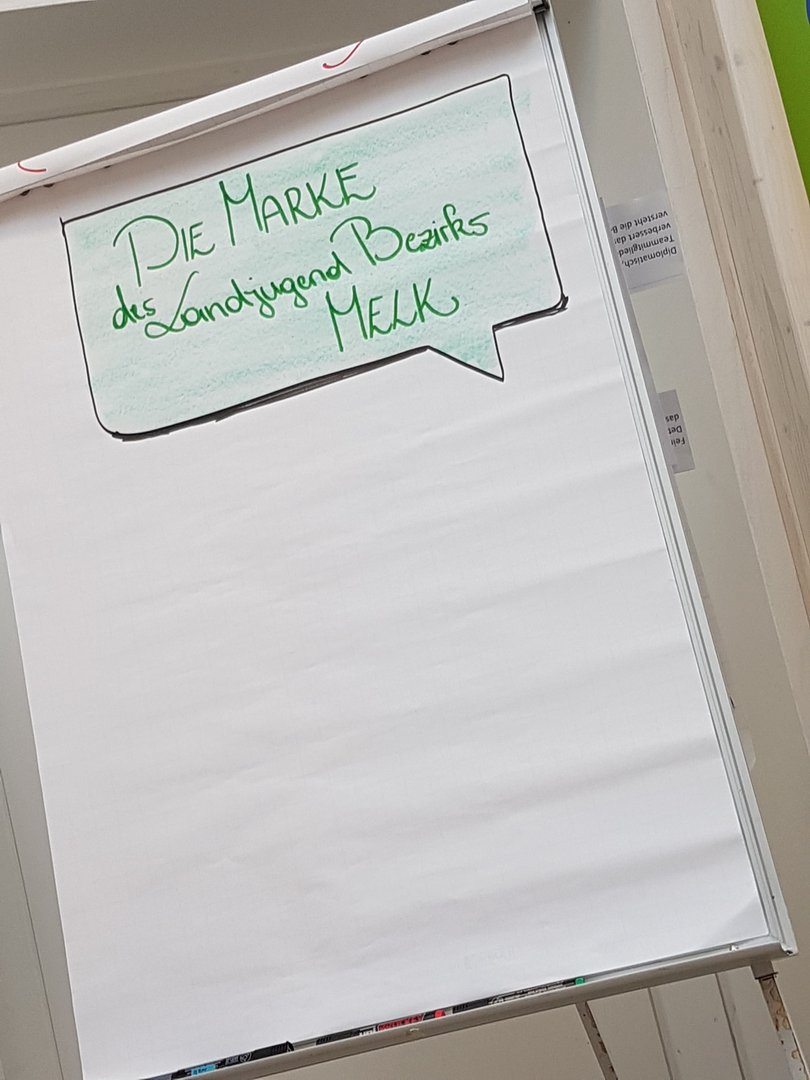 DIE MARKE
des Landjugend Bezirks
MELK
Diplomatisch,
Teammitglied
verbessert da
versteht die B
Fein
Det
das